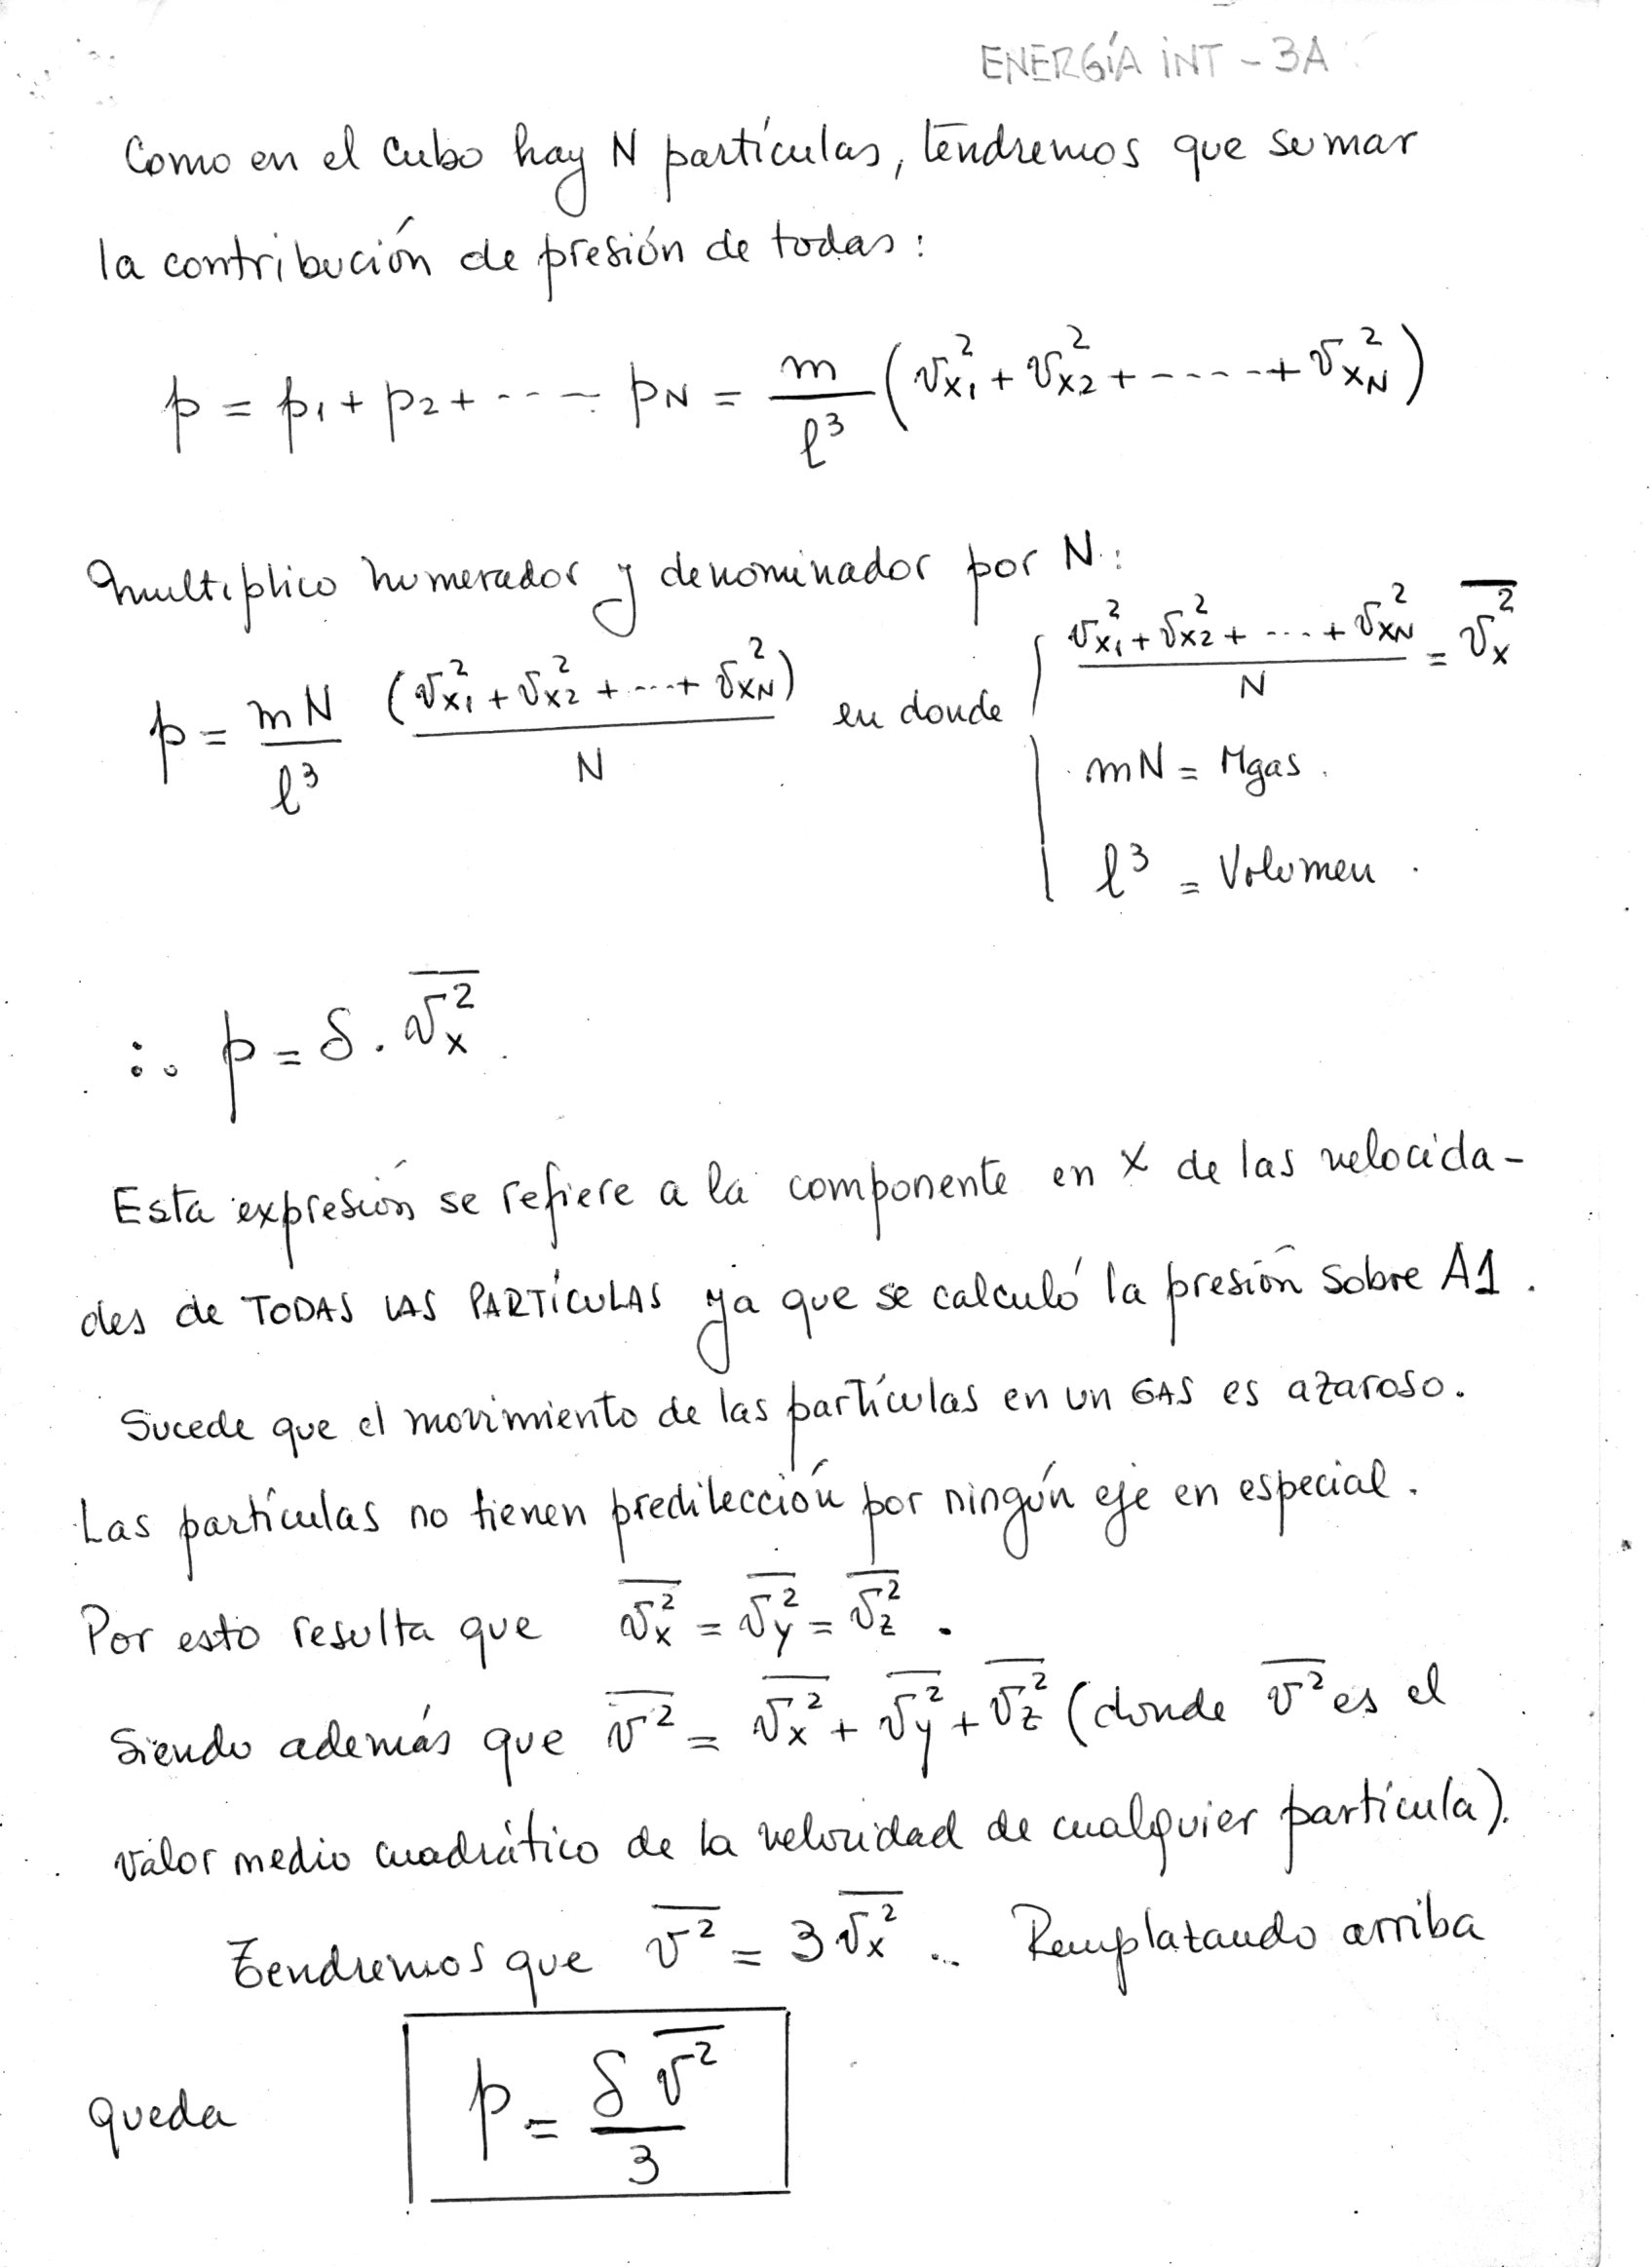 ENERGÍA INT - 3A
Como en el cubo hay N partículas, tendremos que sumar
la contribución de presión de todas:
p = p₁ + p₂ + ---- p_N = m/l³ (v_x₁² + v_x₂² + ----- + v_x_N²)
Multiplico numerador y denominador por N:
p = mN/l³ (v_x₁² + v_x₂² + ---- + v_xN²)/N en donde { (v_x₁² + v_x₂² + ---- + v_xN²)/N = \overline{v_x²}
mN = Mgas.
l³ = Volumen.
∴ p = δ . \overline{v_x²}
Esta expresión se refiere a la componente en x de las velocida-
des de TODAS LAS PARTÍCULAS ya que se calculó la presión sobre A1.
Sucede que el movimiento de las partículas en un GAS es azaroso.
Las partículas no tienen predilección por ningún eje en especial.
Por esto resulta que \overline{v_x²} = \overline{v_y²} = \overline{v_z²}.
Siendo además que \overline{v²} = \overline{v_x²} + \overline{v_y²} + \overline{v_z²} (donde \overline{v²} es el
valor medio cuadrático de la velocidad de cualquier partícula).
Tendremos que \overline{v²} = 3 \overline{v_x²} .. Remplazando arriba
queda p = δ \overline{v²}/3